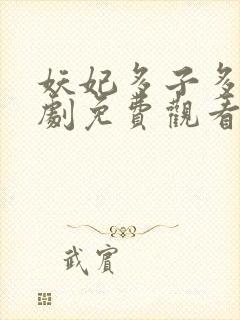 妖妃多子多
劇免費觀看
武賓